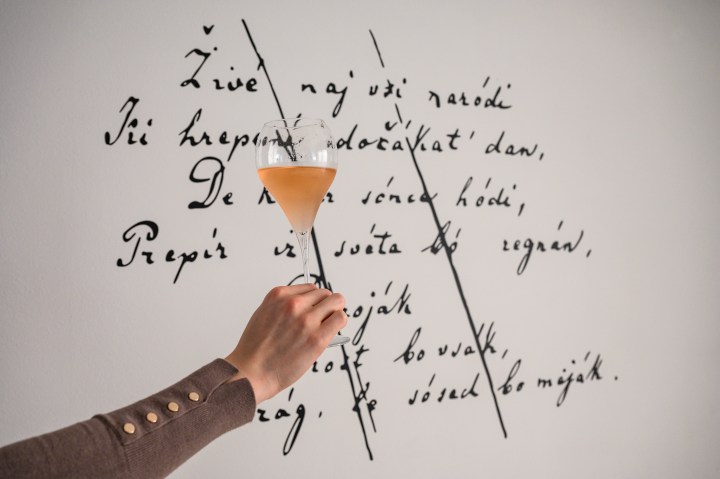 Žive naj vsi naródi
Ki hrepen dočákat' dan,
De sónce hódi,
Prepír iz svéta bó regnán,
oják
rost bo vsák,
rág, le sósed bo meják.